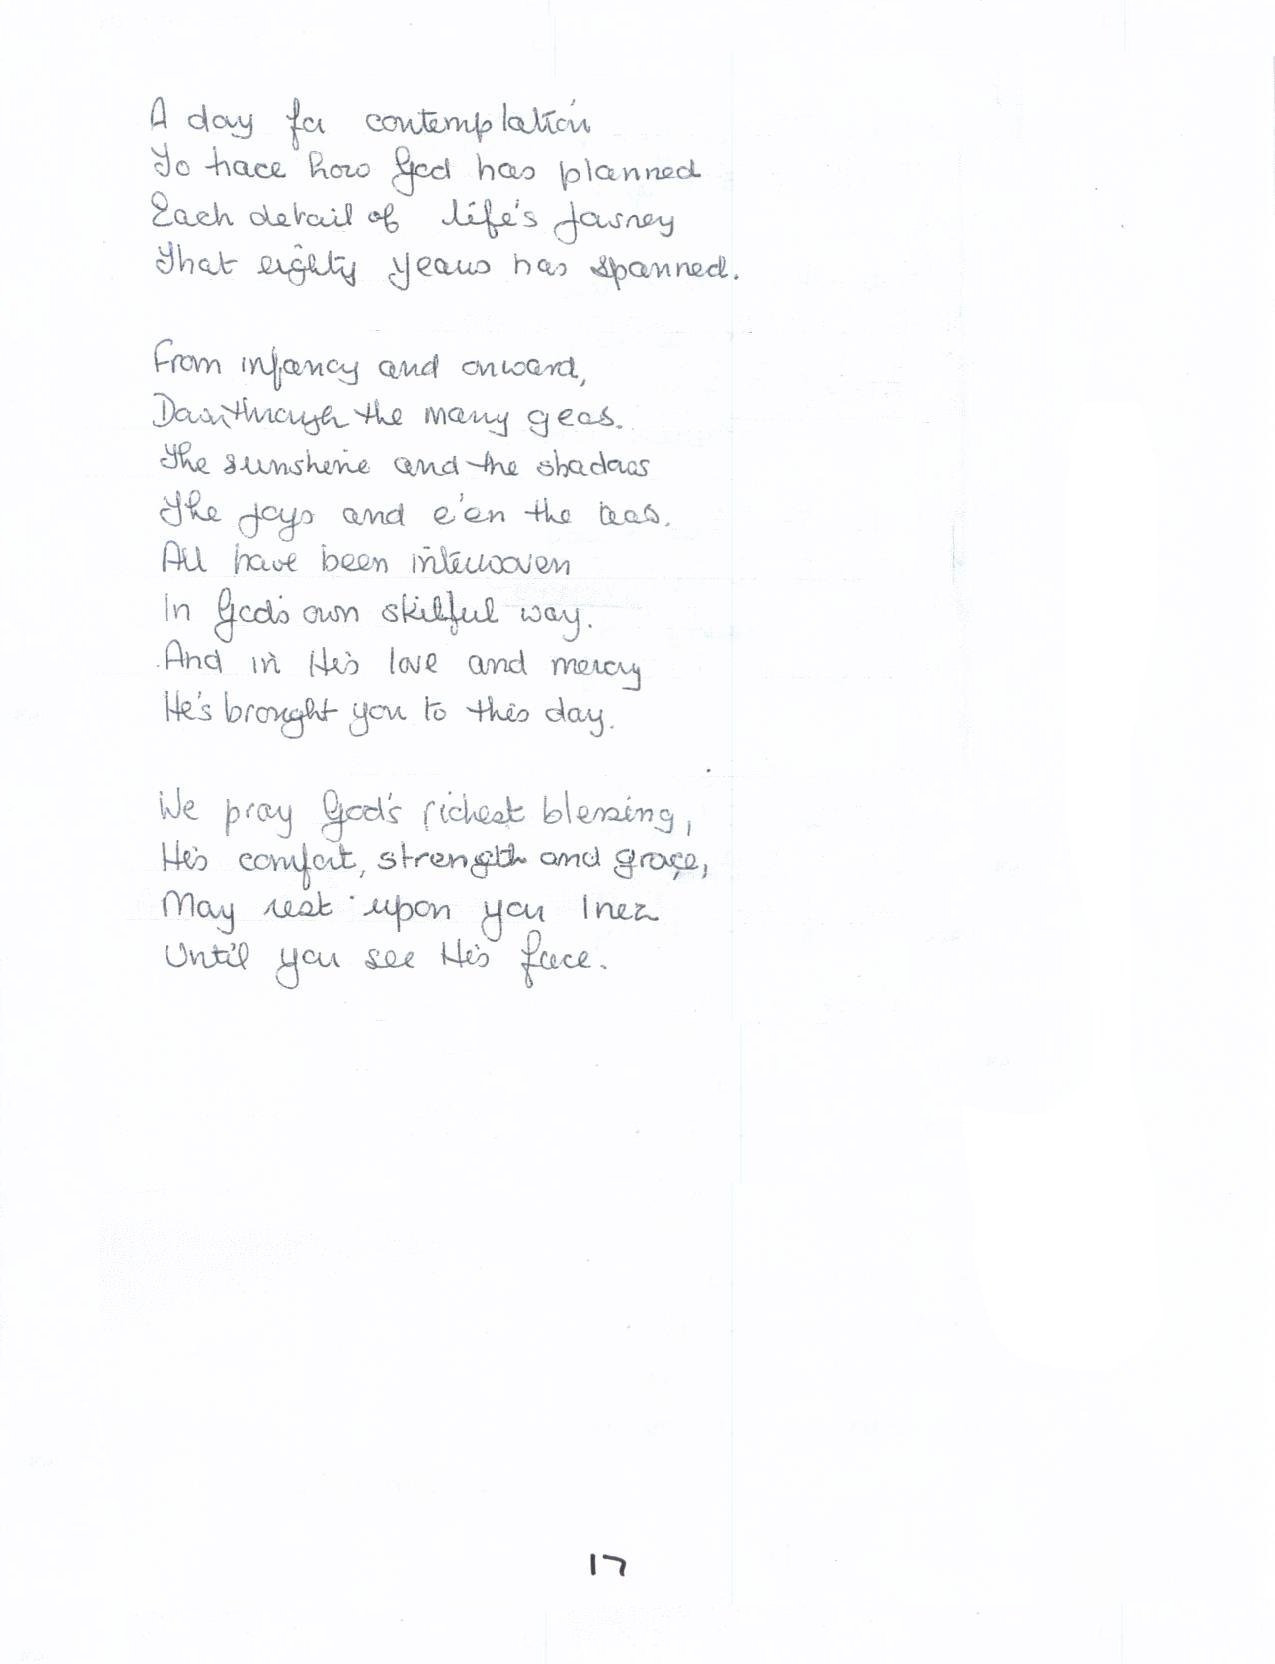 A day for contemplation
To trace how God has planned
Each detail of life's journey
That eighty years has spanned.
From infancy and onward,
Down through the many years.
The sunshine and the shadows
The joys and e'en the tears.
All have been interwoven
In God's own skilful way.
And in His love and mercy
He's brought you to this day.
We pray God's richest blessing,
His comfort, strength and grace,
May rest upon you Inez
Until you see His face.
17